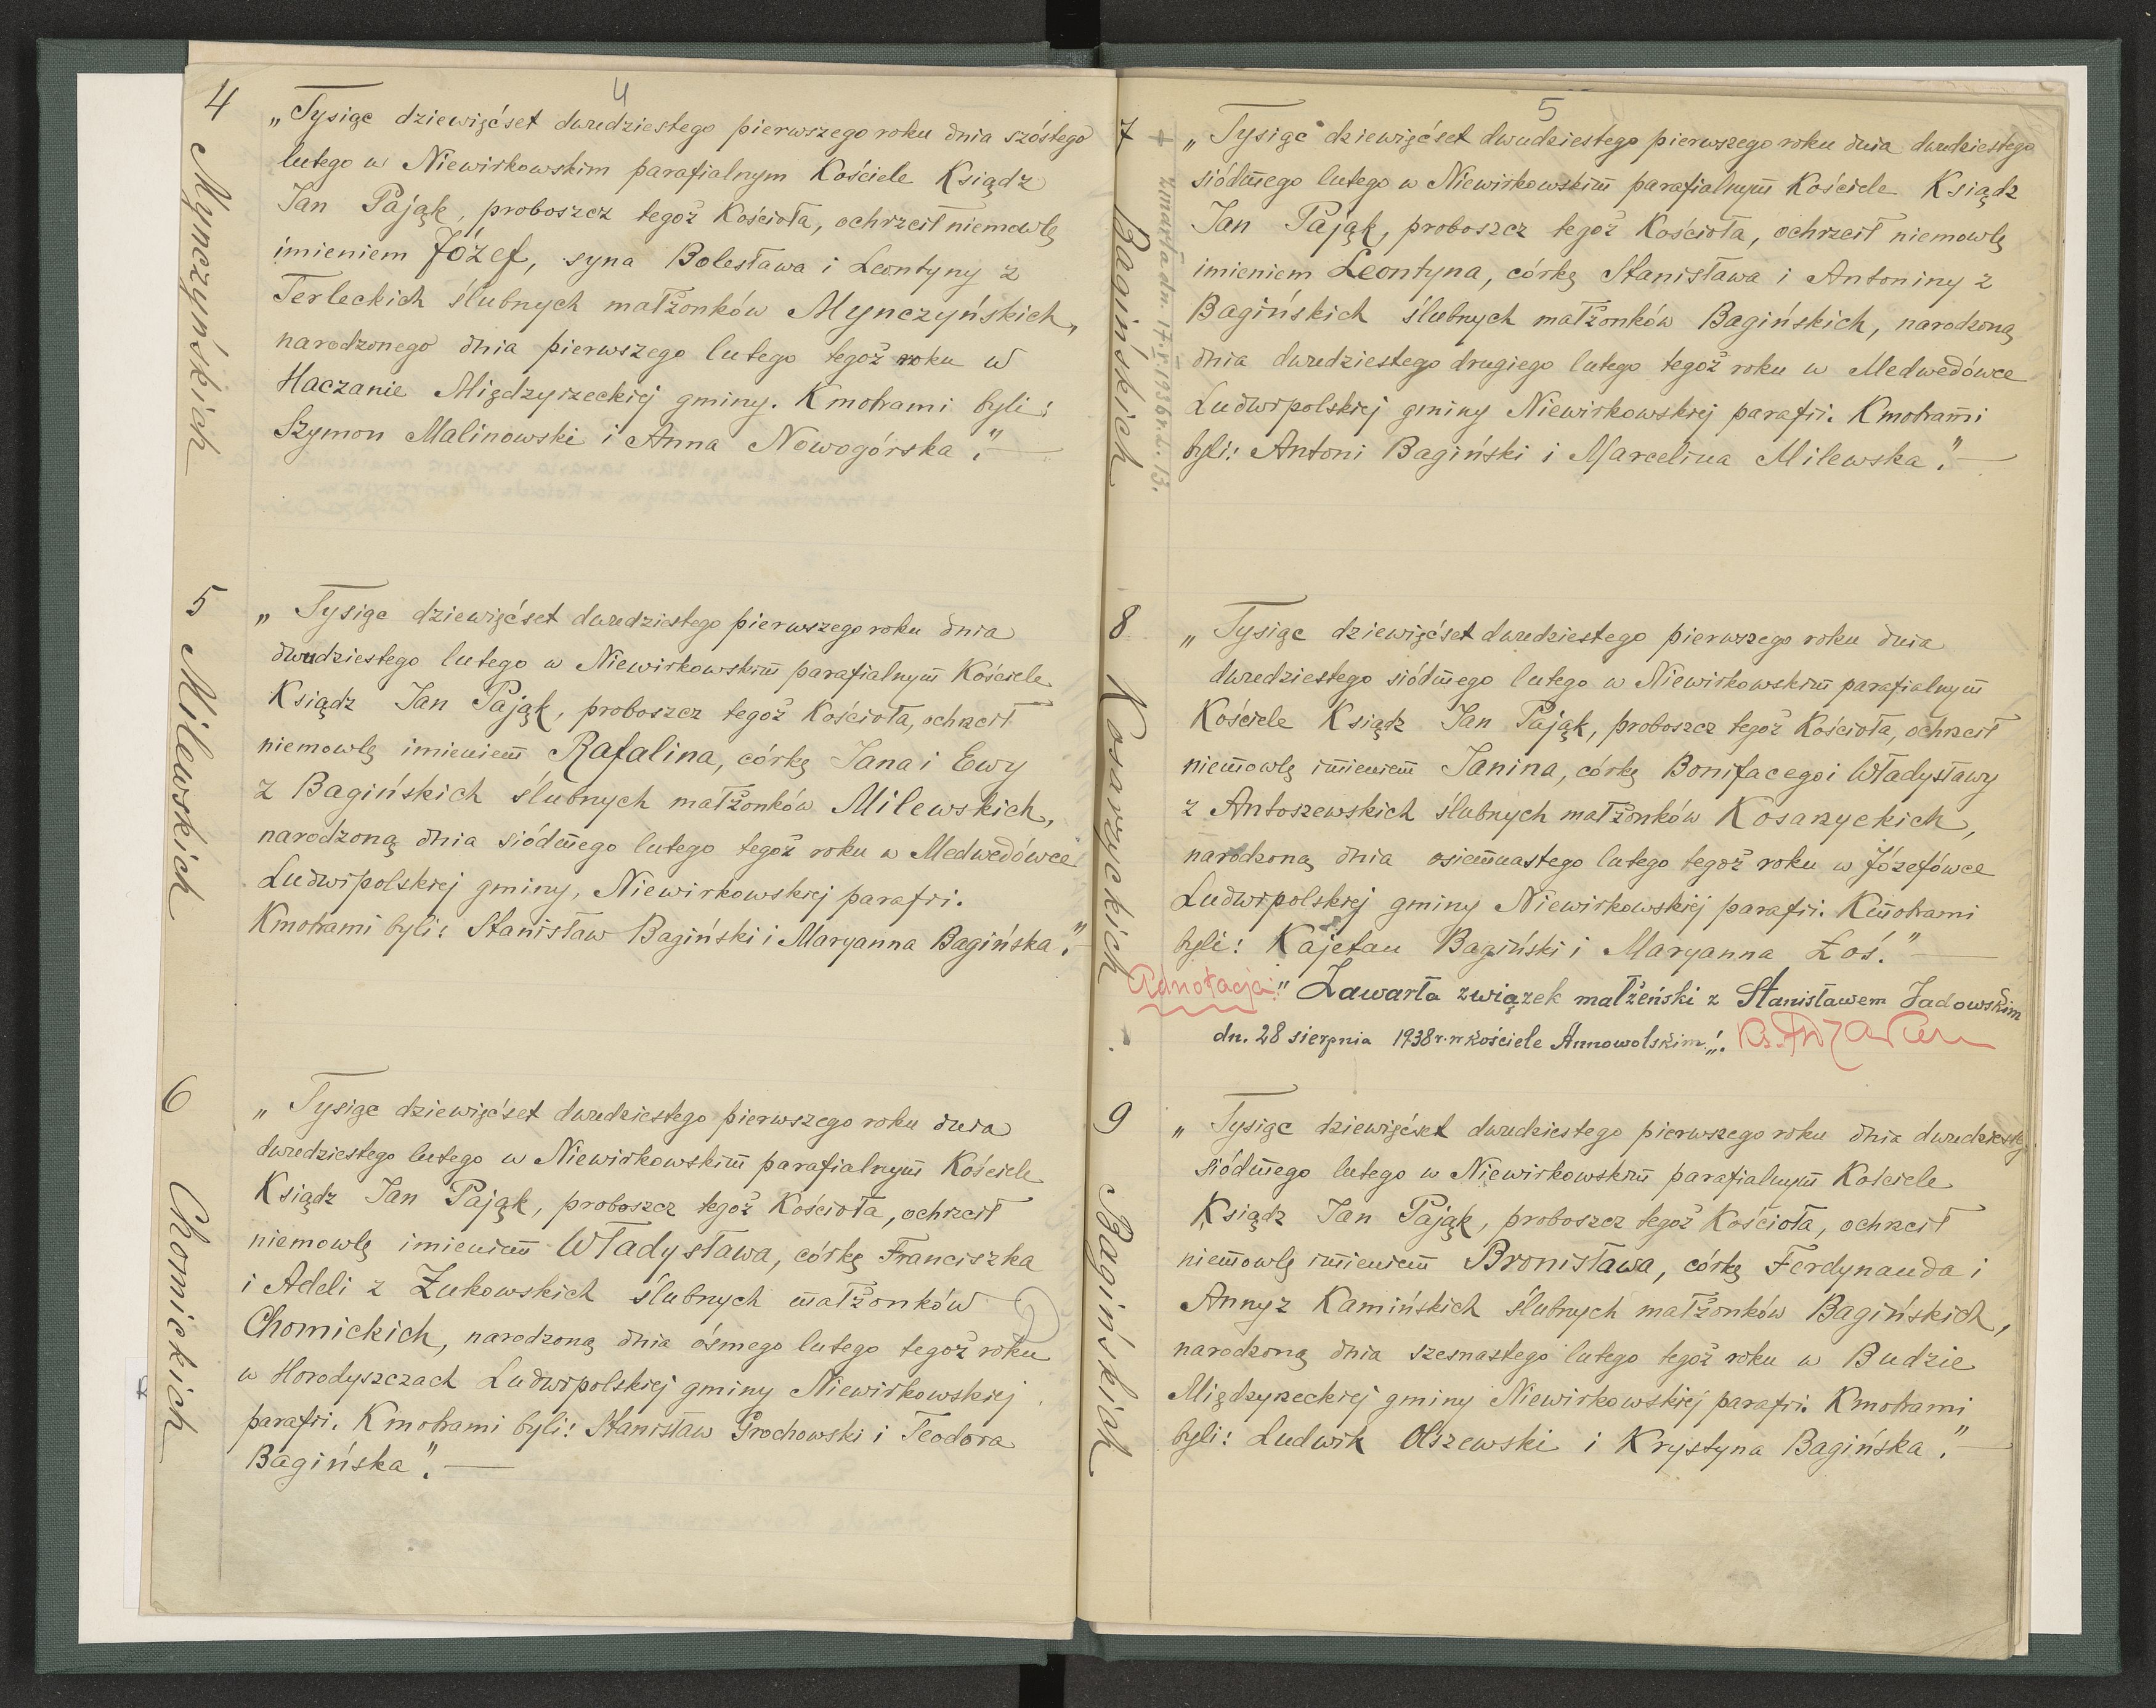 4
4
Mynczyńskich
„Tysiąc dziewięćset dwudziestego pierwszego roku dnia szóstego
lutego w Niewirkowskim parafialnym Kościele Ksiądz
Jan Pająk, proboszcz tegoż Kościoła, ochrzcił niemowlę
imieniem Józef, syna Bolesława i Leontyny z
Terleckich ślubnych małżonków Mynczyńskich,
narodzonego dnia pierwszego lutego tegoż roku w
Haczanie Międzyrzeckiej gminy. Kmotrami byli:
Szymon Malinowski i Anna Nowogórska."
5
Milewskich
„Tysiąc dziewięćset dwudziestego pierwszego roku dnia
dwudziestego lutego w Niewirkowskim parafialnym Kościele
Ksiądz Jan Pająk, proboszcz tegoż Kościoła, ochrzcił
niemowlę imieniem Rafalina, córkę Jana i Ewy
z Bagińskich ślubnych małżonków Milewskich,
narodzoną dnia siódmego lutego tegoż roku w Medwedówce
Ludwipolskiej gminy, Niewirkowskiej parafii.
Kmotrami byli: Stanisław Bagiński i Maryanna Bagińska."
6
Chomickich
„Tysiąc dziewięćset dwudziestego pierwszego roku dnia
dwudziestego lutego w Niewirkowskim parafialnym Kościele
Ksiądz Jan Pająk, proboszcz tegoż Kościoła, ochrzcił
niemowlę imieniem Władysława, córkę Franciszka
i Adeli z Żukowskich ślubnych małżonków
Chomickich, narodzoną dnia ósmego lutego tegoż roku
w Horodyszczach Ludwipolskiej gminy Niewirkowskiej
parafii. Kmotrami byli: Stanisław Grochowski i Teodora
Bagińska".
5
7
Bagińskich
+ zmarła dn. 17.V.1936 r. L. 13.
„Tysiąc dziewięćset dwudziestego pierwszego roku dnia dwudziestego
siódmego lutego w Niewirkowskim parafialnym Kościele Ksiądz
Jan Pająk, proboszcz tegoż Kościoła, ochrzcił niemowlę
imieniem Leontyna, córkę Stanisława i Antoniny z
Bagińskich ślubnych małżonków Bagińskich, narodzoną
dnia dwudziestego drugiego lutego tegoż roku w Medwedówce
Ludwipolskiej gminy Niewirkowskiej parafii. Kmotrami
byli: Antoni Bagiński i Marcelina Milewska."
8
Kosarzyckich
„Tysiąc dziewięćset dwudziestego pierwszego roku dnia
dwudziestego siódmego lutego w Niewirkowskim parafialnym
Kościele Ksiądz Jan Pająk, proboszcz tegoż Kościoła, ochrzcił
niemowlę imieniem Janina, córkę Bonifacego i Władysławy
z Antoszewskich ślubnych małżonków Kosarzyckich,
narodzoną dnia osiemnastego lutego tegoż roku w Józefówce
Ludwipolskiej gminy Niewirkowskiej parafii. Kmotrami
byli: Kajetan Bagiński i Maryanna Łoś."
Adnotacja: „Zawarła związek małżeński z Stanisławem Sadowskim
dn. 28 sierpnia 1938 r. w kościele Annowolskim".
9
Bagińskich
„Tysiąc dziewięćset dwudziestego pierwszego roku dnia dwudziesteg
siódmego lutego w Niewirkowskim parafialnym Kościele
Ksiądz Jan Pająk, proboszcz tegoż Kościoła, ochrzcił
niemowlę imieniem Bronisława, córkę Ferdynanda i
Anny z Kamińskich ślubnych małżonków Bagińskich,
narodzoną dnia szesnastego lutego tegoż roku w Budzie
Międzyrzeckiej gminy Niewirkowskiej parafii. Kmotrami
byli: Ludwik Olszewski i Krystyna Bagińska."